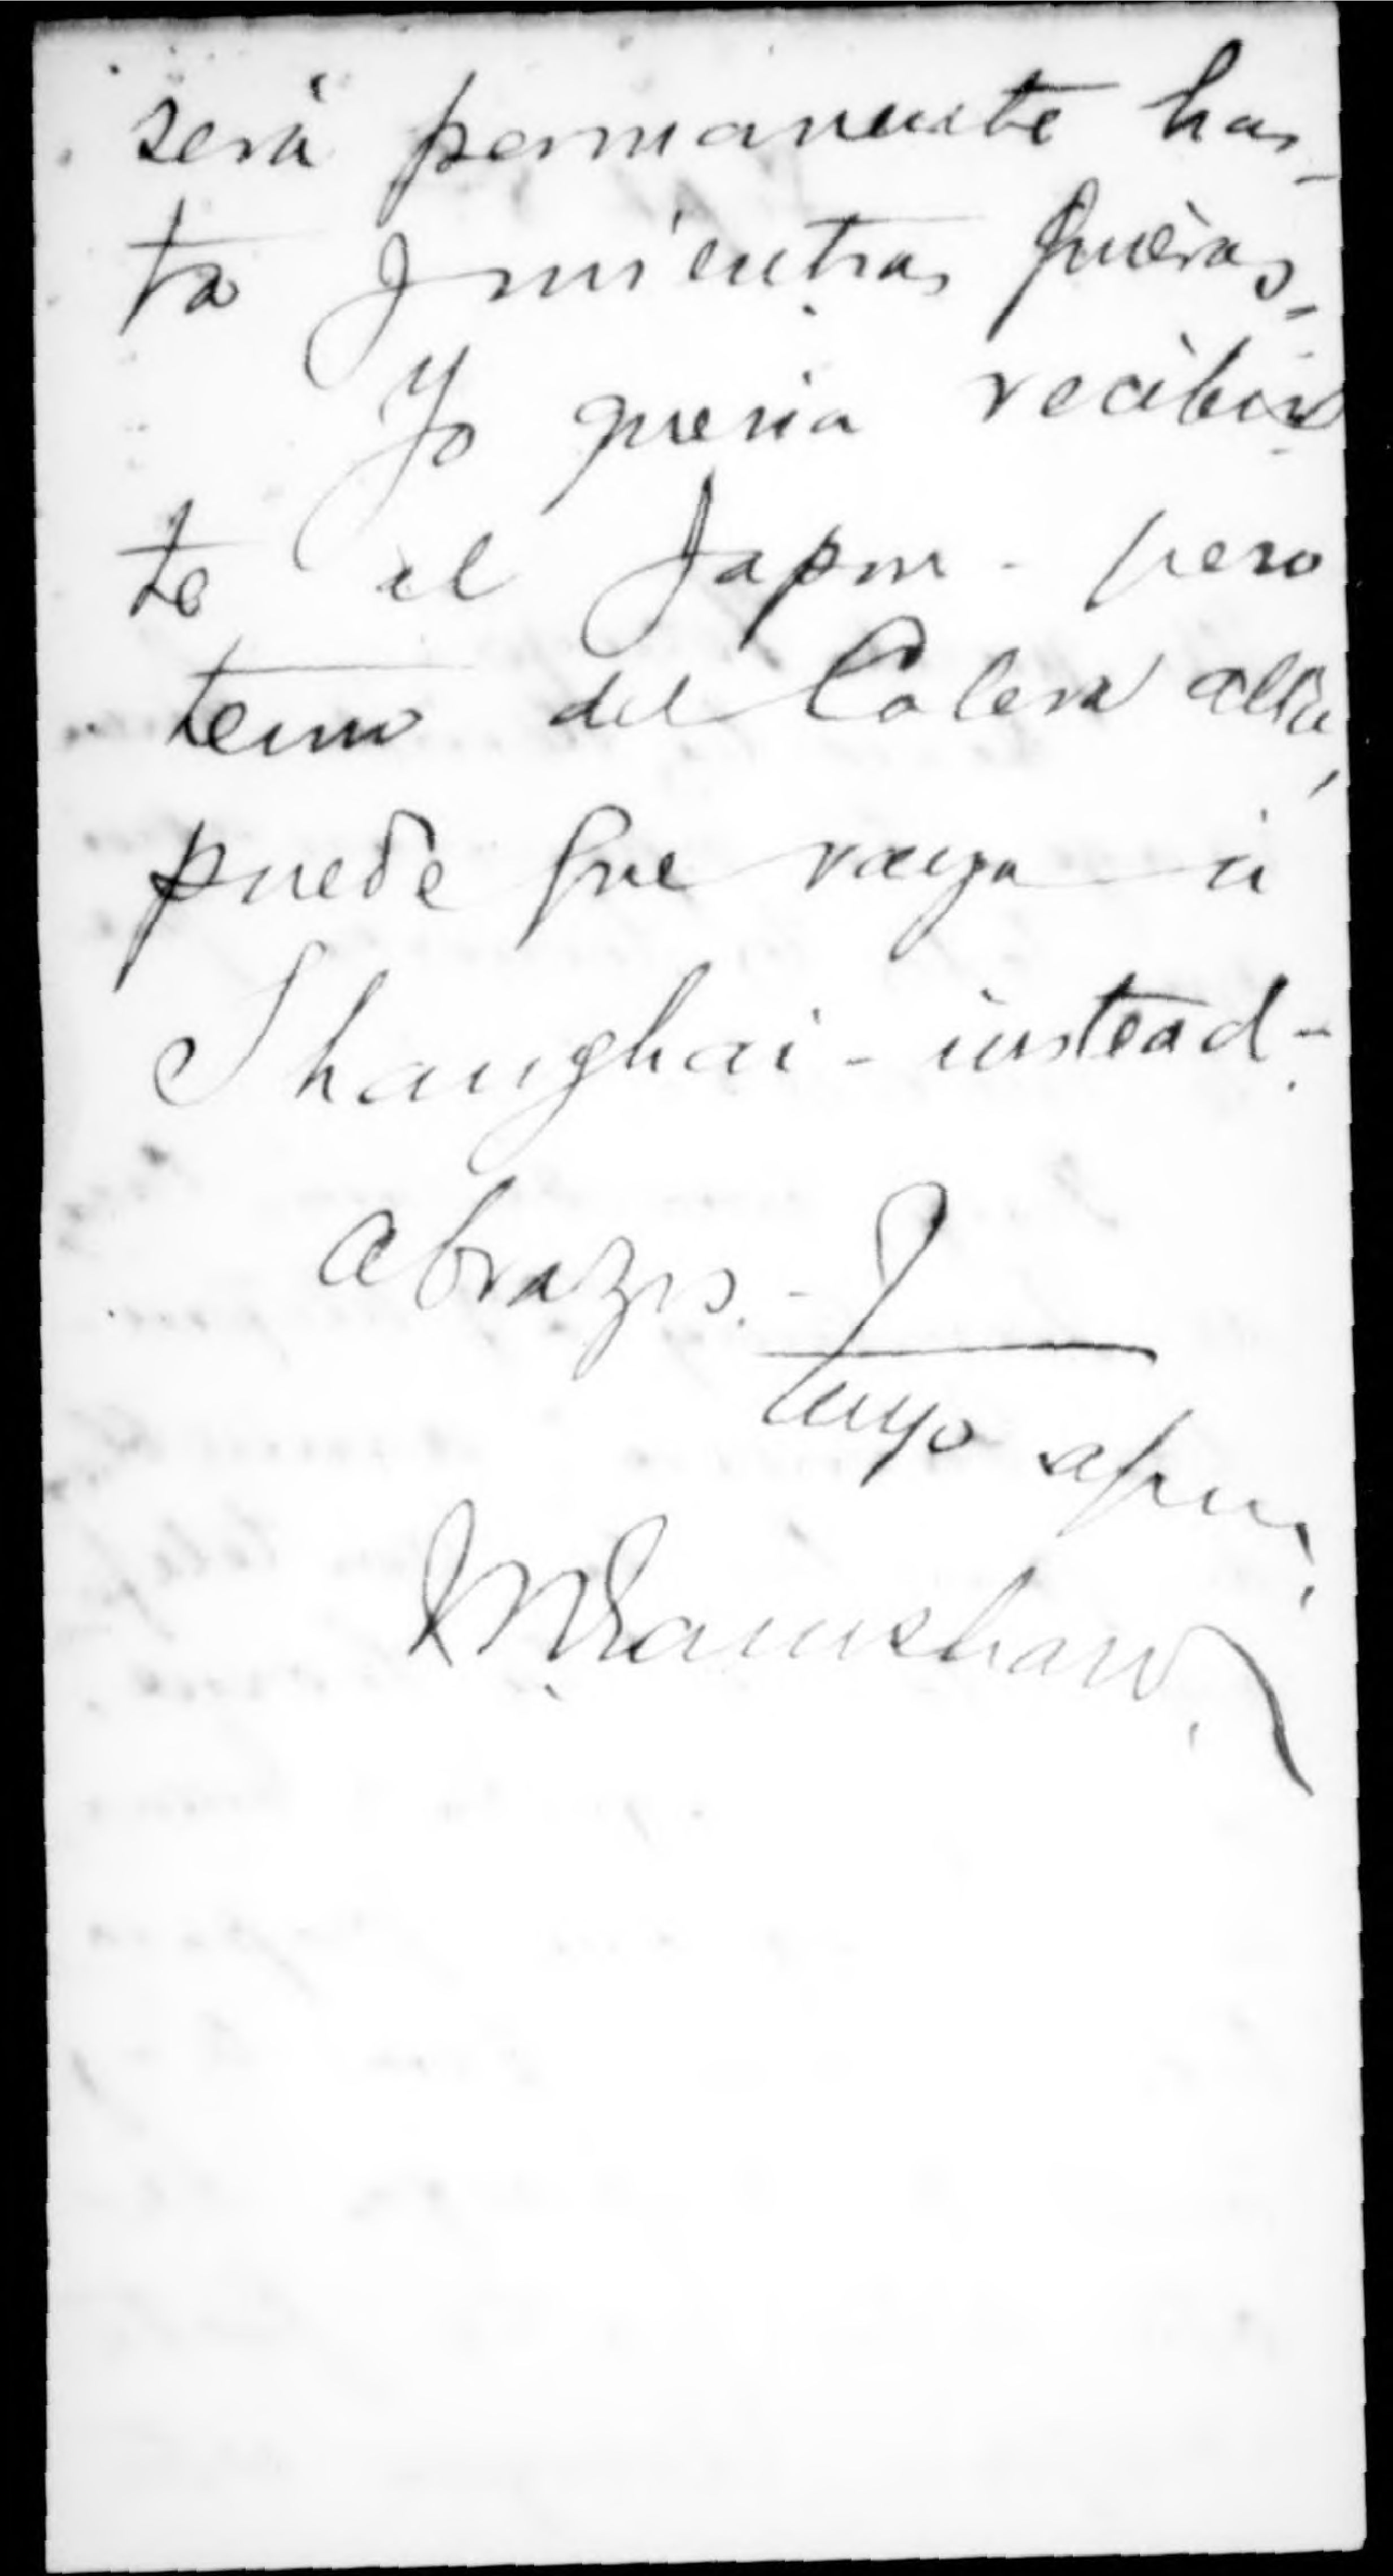 será permanente has-
ta y mientras quieras.
Yo queria recibir
te el Japon - pero
temo del Colera allá,
puede que vaya á
Shanghai - instead -
Abrazos. -
Tuyo afmo.